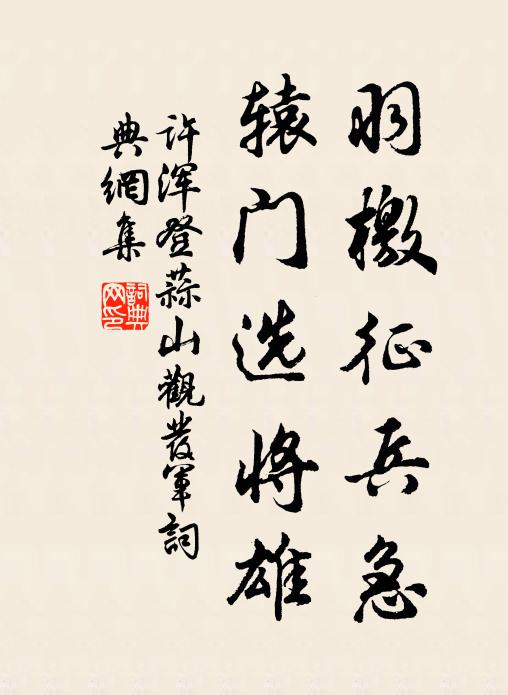 羽檄征兵急
辕门选将雄
许浑登蒜山觀發军詞
典網集
詞典
网印